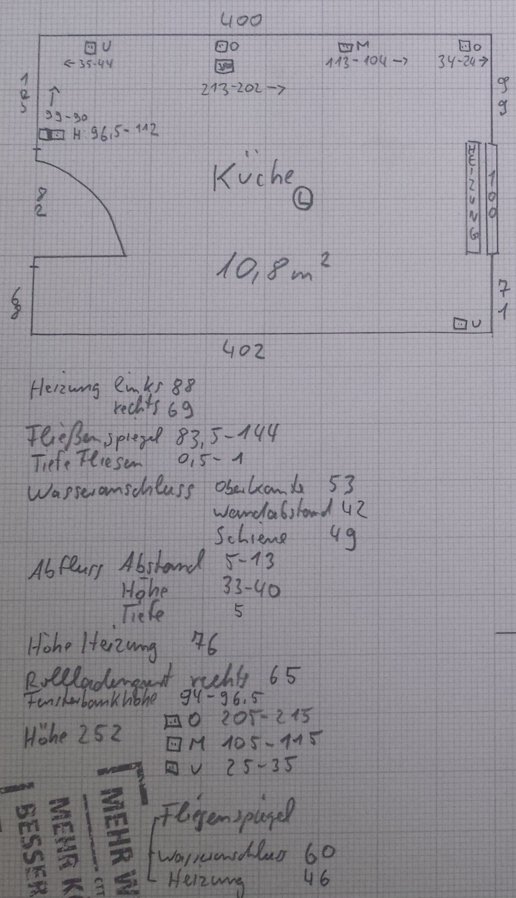 400
U O M O
←35-44 213-202→ 113-104→ 34-24→
185 99
99-90
H 96,5-112
Küche
L
HEIZUNG 100
82
10,8 m²
68 71
U
402
Heizung links 88
rechts 69
Fließenspiegel 83,5-144
Tiefe Fliesen 0,5-1
Wasseranschluss Oberkante 53
Wandabstand 42
Schiene 49
Abfluss Abstand 5-13
Höhe 33-40
Tiefe 5
Höhe Heizung 76
Rollladengurt rechts 65
Fensterbankhöhe 94-96,5
O 205-215
Höhe 252
M 105-115
U 25-35
Fliesenspiegel
Wasseranschluss 60
Heizung 46
MEHR W
MEHR K
BESSER